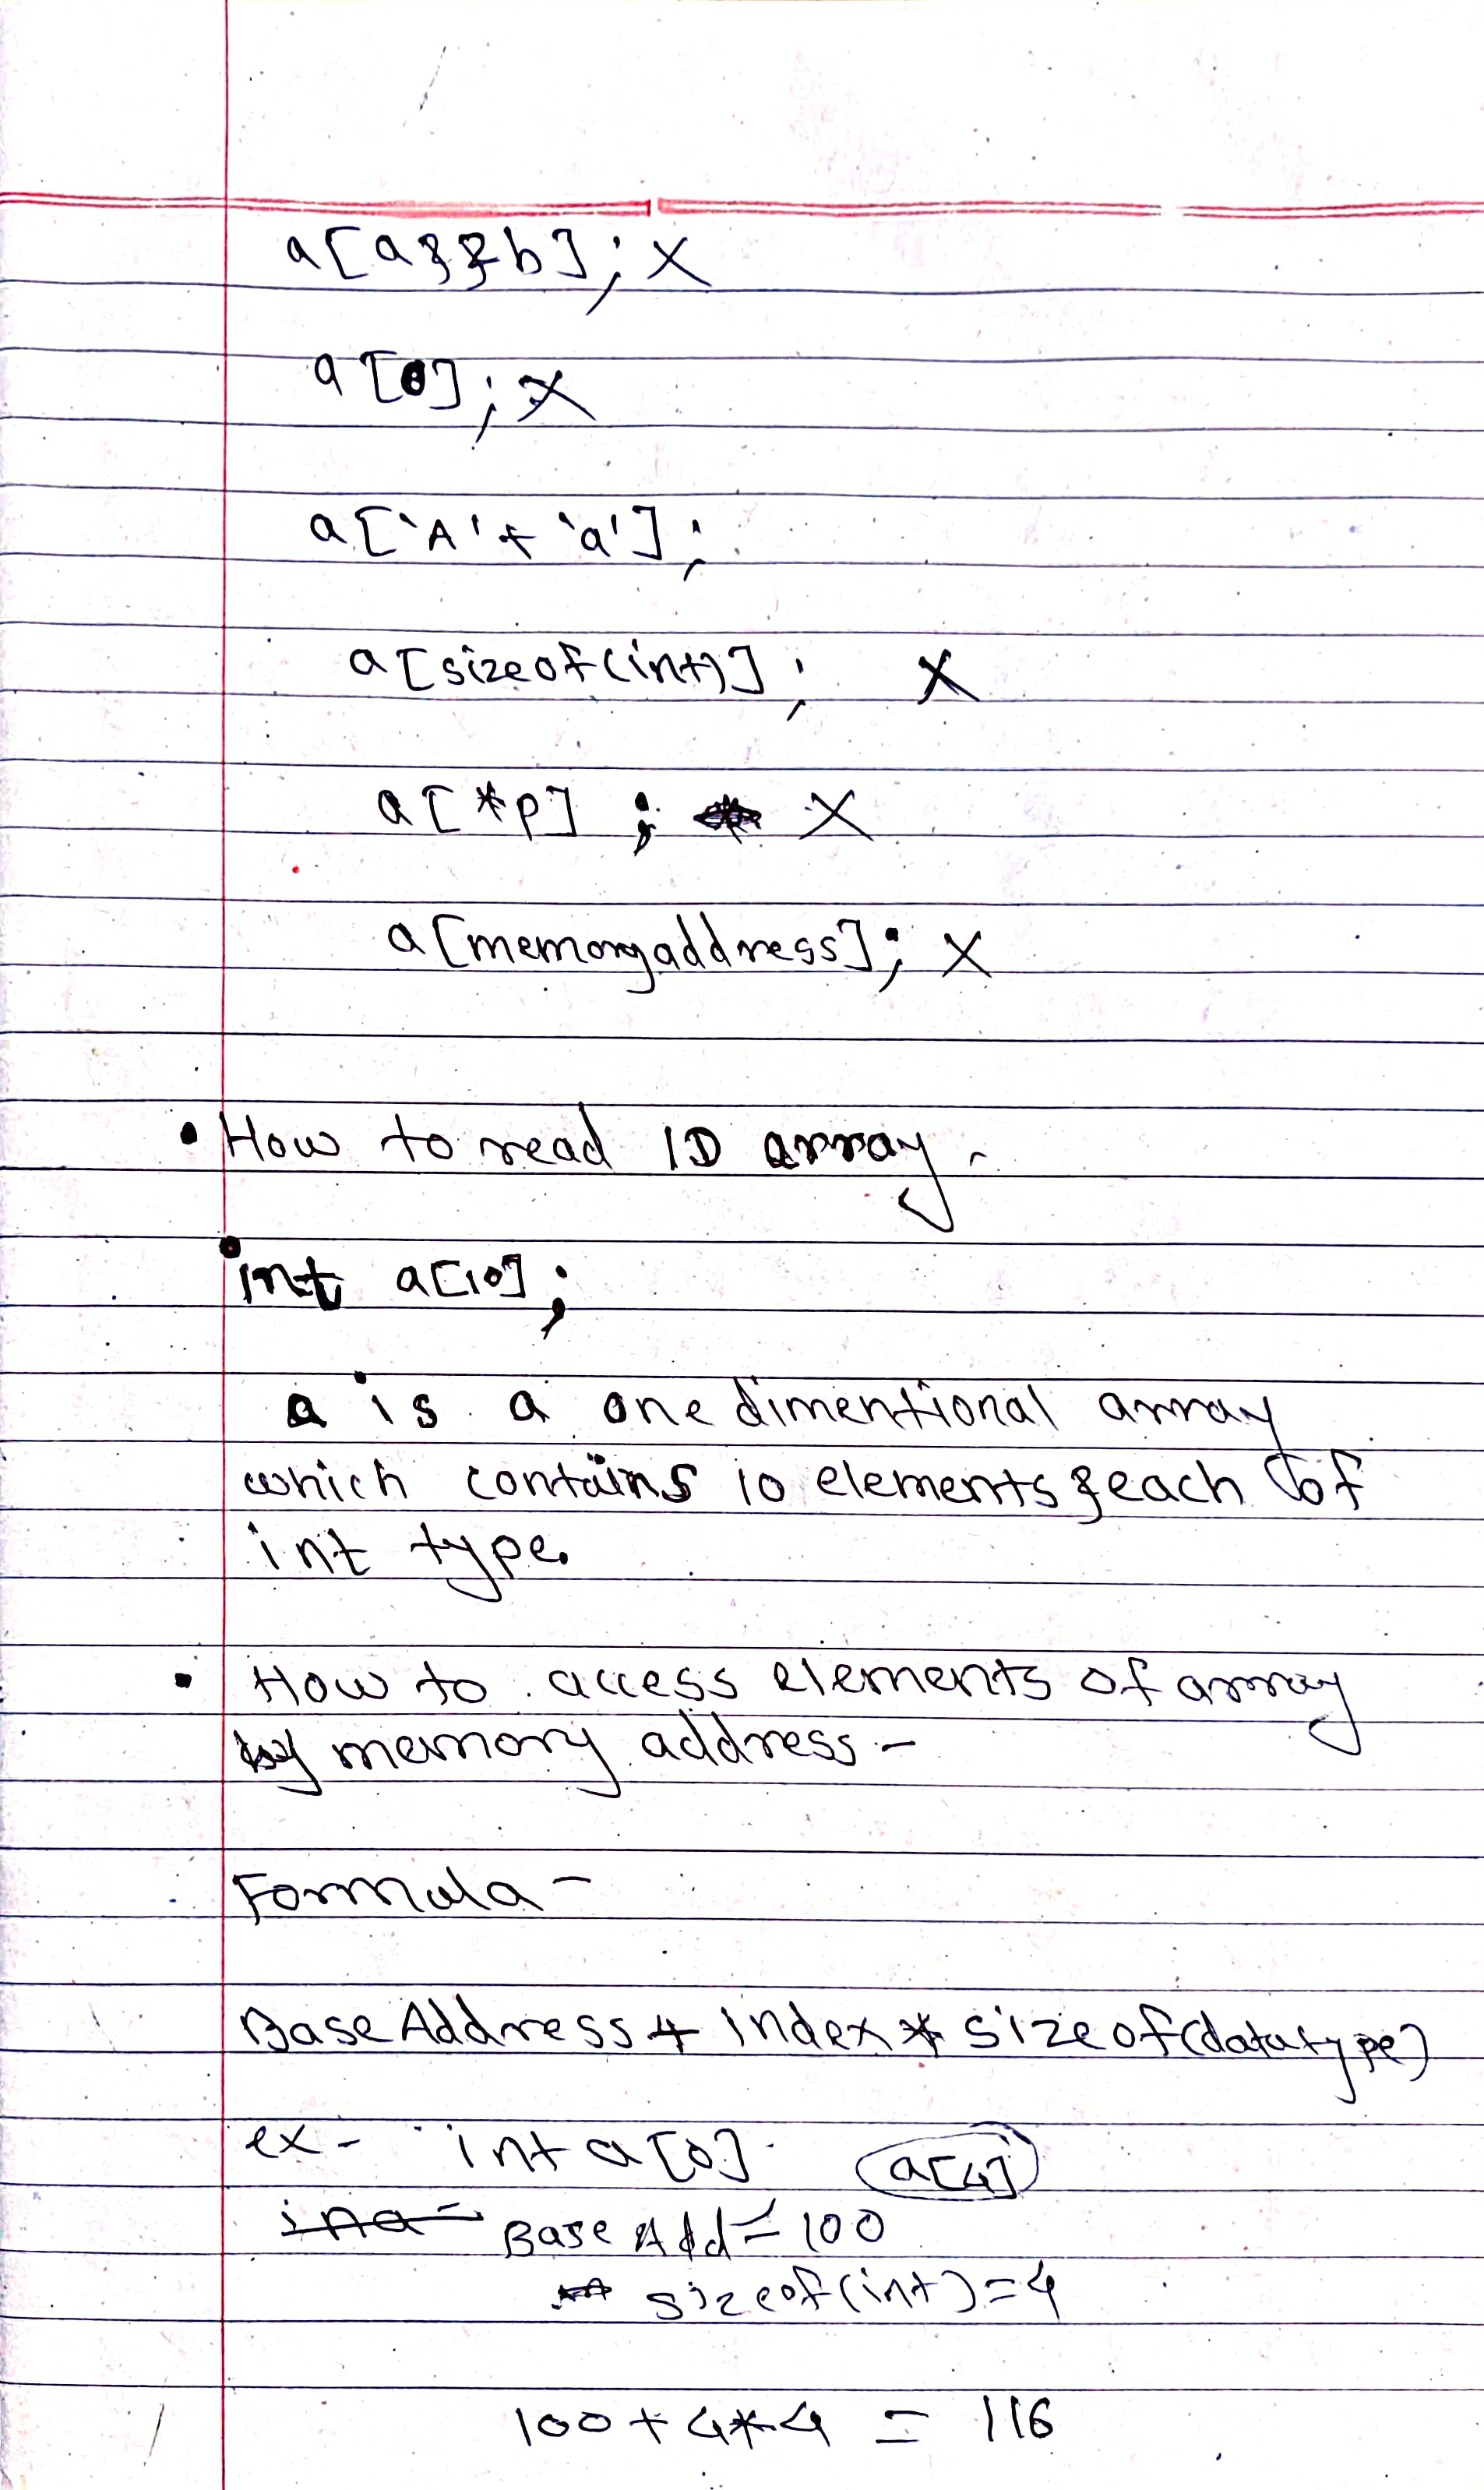 a[a&&b]; X
a[0]; X
a['A'+'a'];
a[sizeof(int)]; X
a[*p]; X
a[memoryaddress]; X
• How to read 1D array -
int a[10];
a is a one dimentional array
which contains 10 elements & each of
int type.
• How to access elements of array
by memory address -
Formula -
Base Address + index * sizeof(datatype)
ex - int a[0] a[4]
ina =
Base Add = 100
sizeof(int) = 4
100 + 4*4 = 116